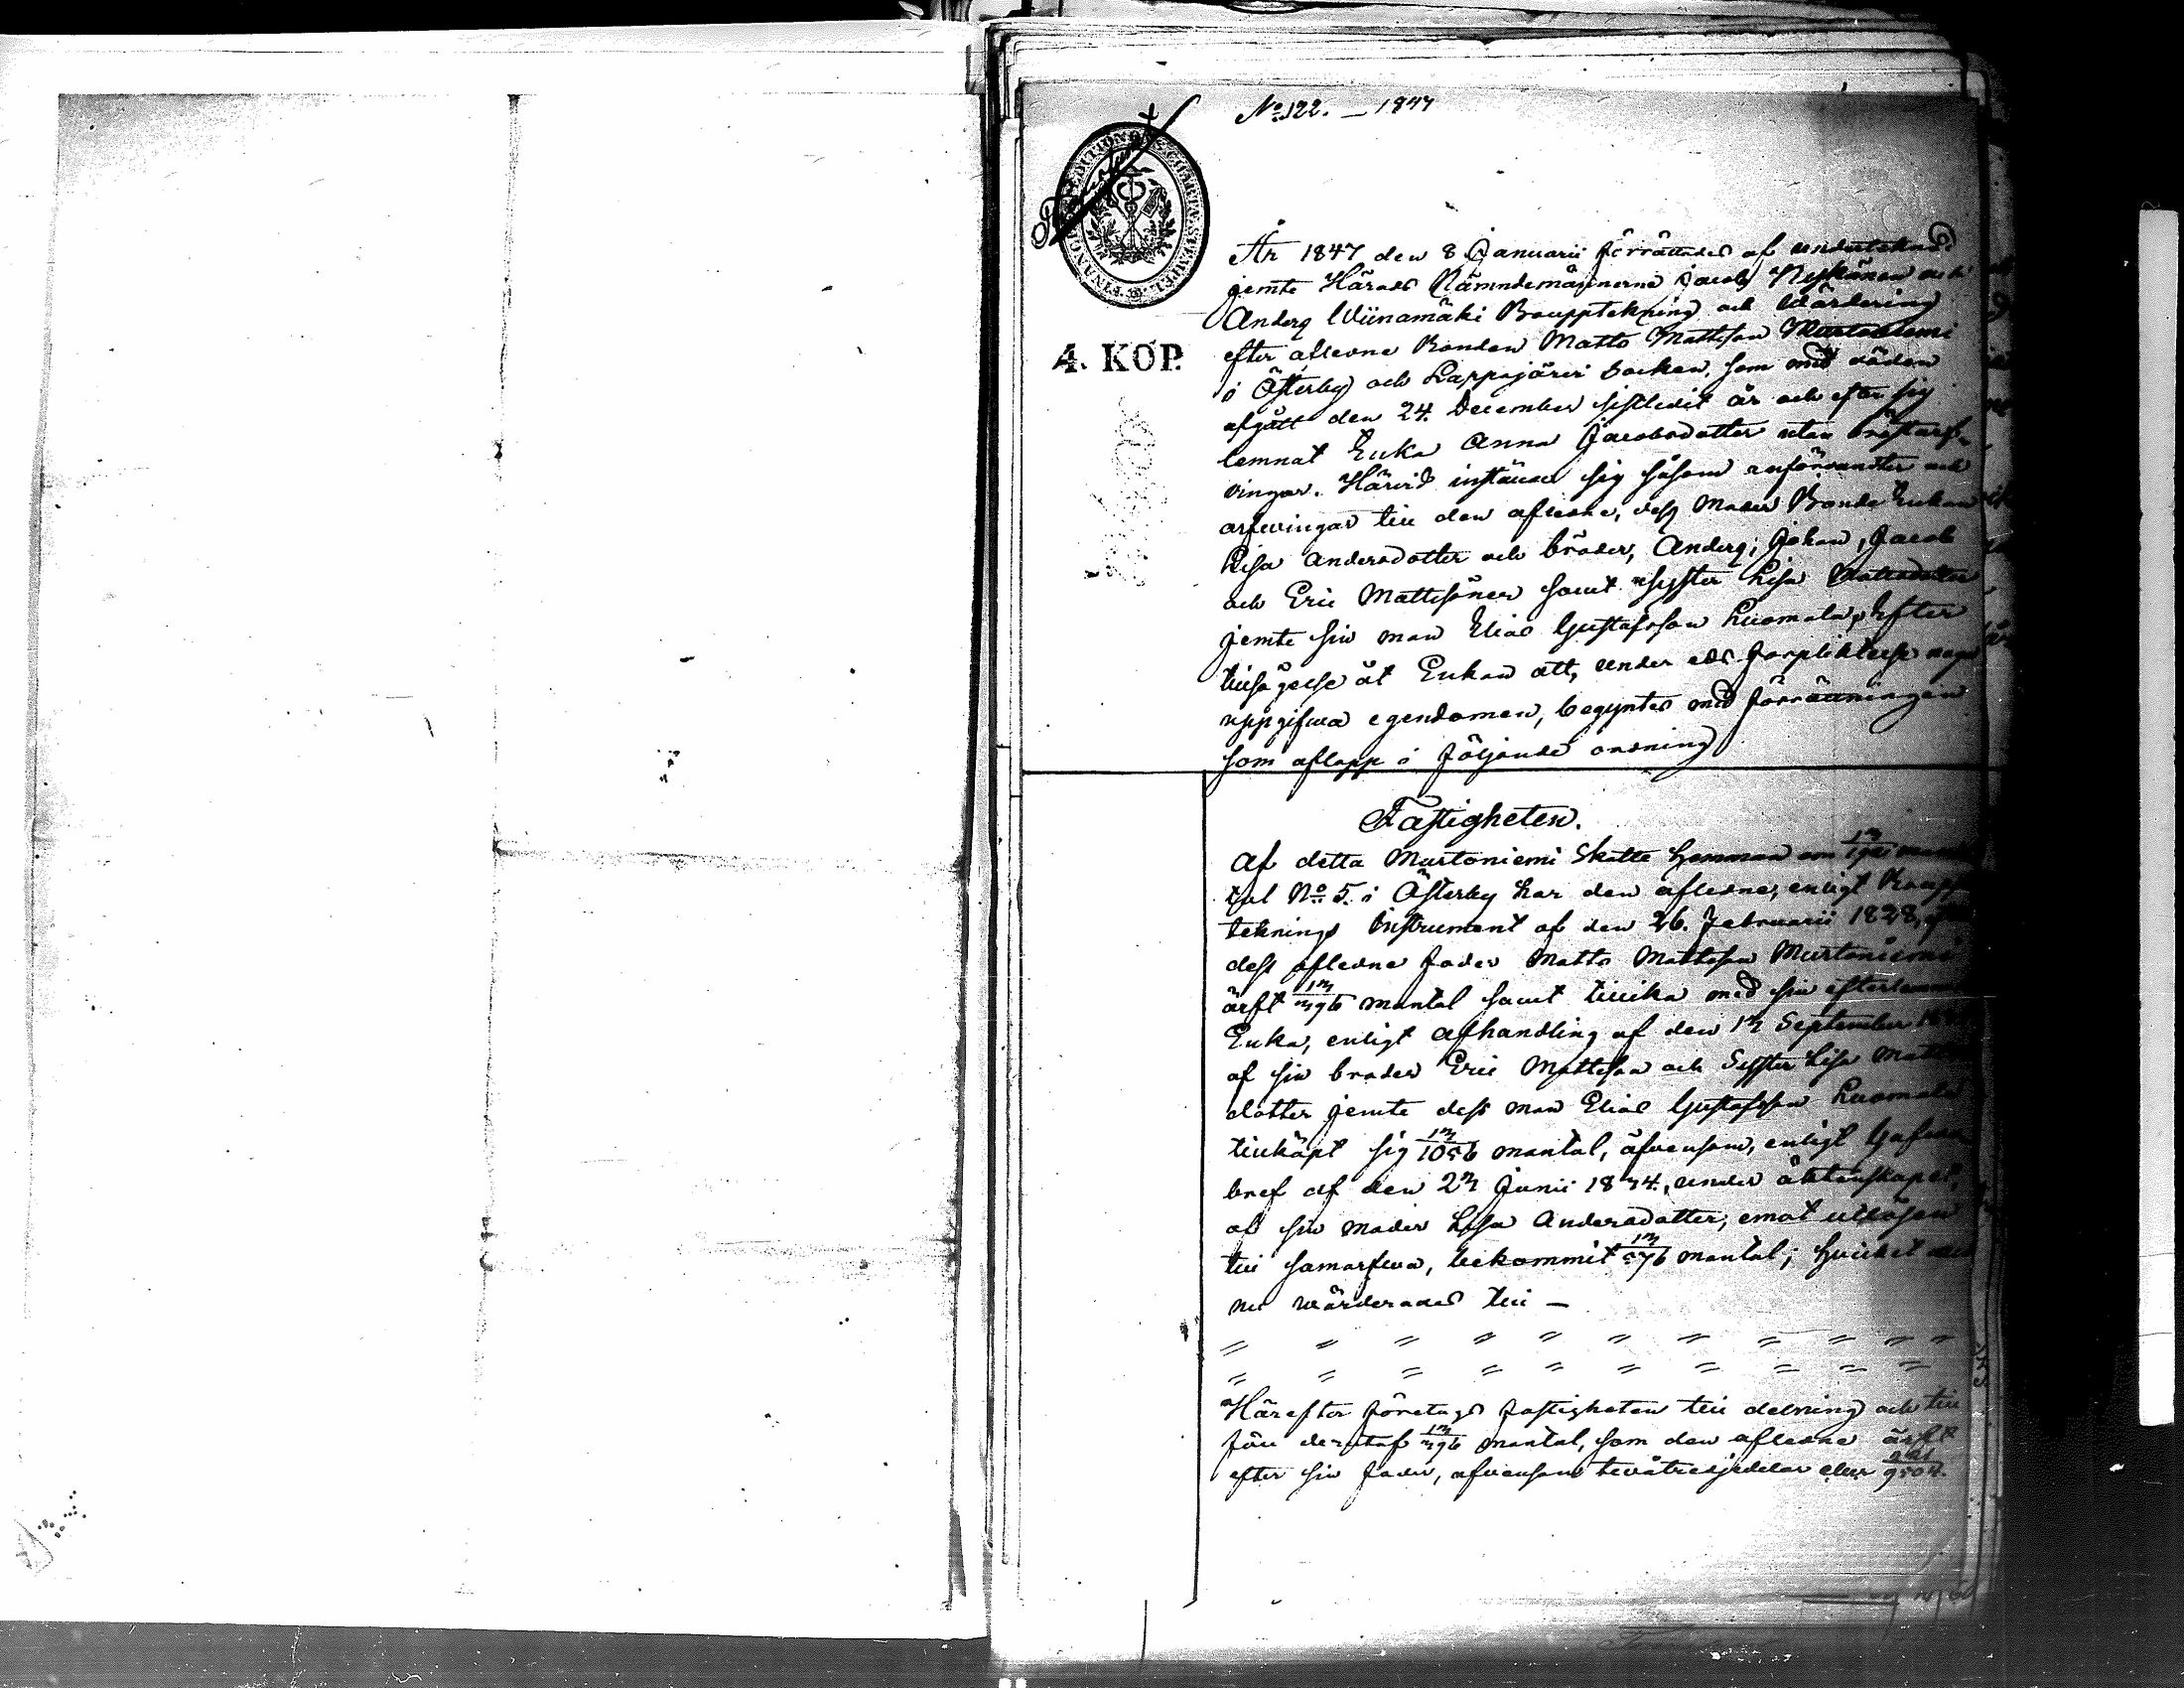 No 122. — 1847
FINANCE EXPEDITIONENS CHARTÆ STEMPEL
4. KOP.
År 1847 den 8 Januarii förrättades af underteknad
jemte Härads Nämndemännerne Jacob Nykänen och
Anders Wiinamäki Boupptekning och Wärdering
efter afledne Bonden Matts Mattsson Murtoniemi
i Österby och Lappajärvi Socken, som med döden
afgått den 24. December sistledit år och efter sig
lemnat Enka Anna Jacobsdotter utan bröstarf-
vingar. Härvid instämde sig såsom anförvandter och
arfwingar till den aflidne, dess Moder Bonde Enkan
Lisa Andersdotter och bröder, Anders, Johan, Jacob
och Eric Mattssöner samt syster Lisa Mattsdotter
jemte sin man Elias Gustafsson Luomala, Efter
tillsägelse åt Enkan att, under eds förpliktelse
uppgifwa egendomen, begyntes med förrättningen
som aflopp i följande ordning
Fastigheten.
Af detta Murtoniemi Skatte hemman om
tal No 5. i Österby har den aflidne, enligt Boupp
teknings Instrument af den 26. Februarii 1828,
dess aflidne fader Matts Mattsson Murtoniemi
ärft mantal samt tillika med sin efterlemn
Enka, enligt afhandling af den 13 September
af sin broder Eric Mattsson och Syster Lisa Matts
dotter jemte dess man Elias Gustafsson Luomala
tillköpt sig 13/1056 mantal, äfvensom, enligt Gåfvo
bref af den 23 Junii 1844, under äktenskapet,
af sin moder Lisa Andersdotter, emot utlösen
till samarfwa, bekommit mantal; hvilket
nu wärderades till —
〃 〃 〃 〃 〃 〃 〃 〃 〃 〃 〃
〃 〃 〃 〃 〃 〃 〃 〃 〃 〃
Härefter företogs fastigheten till delning och till
föll mantal, som den aflidne ärft
efter sin fader, äfvensom tvåtredjedelar eller